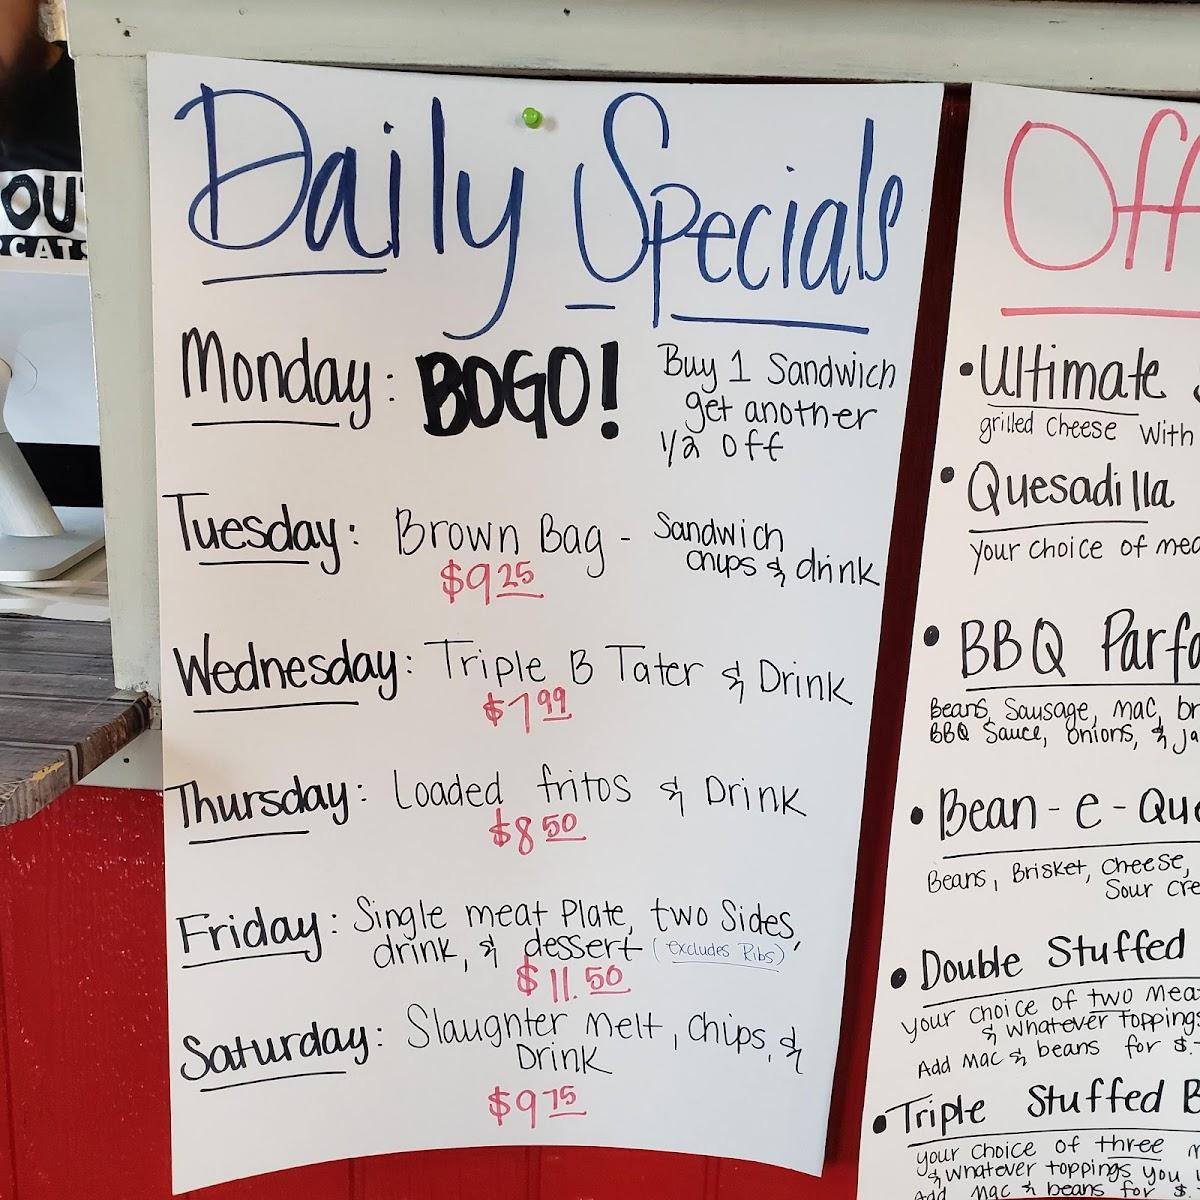 OU
CATS
Daily Specials
Monday: BOGO! Buy 1 Sandwich
get another
1/2 off
Tuesday: Brown Bag - Sandwich
chips & drink
$9.25
Wednesday: Triple B Tater & Drink
$7.99
Thursday: Loaded fritos & Drink
$8.50
Friday: Single meat Plate, two Sides,
drink, & dessert (excludes Ribs)
$11.50
Saturday: Slaughter Melt, Chips, &
Drink
$9.75
Off
• Ultimate
grilled cheese with
• Quesadilla
your choice of
• BBQ
Beans, Sausage, mac,
BBQ Sauce, onions, &
• Bean-e-
Beans, Brisket, Cheese,
Sour
• Double Stuffed
your choice of two
& whatever toppings
Add Mac & beans for $
• Triple Stuffed
your choice of three
& whatever toppings you
Add Mac & beans for $